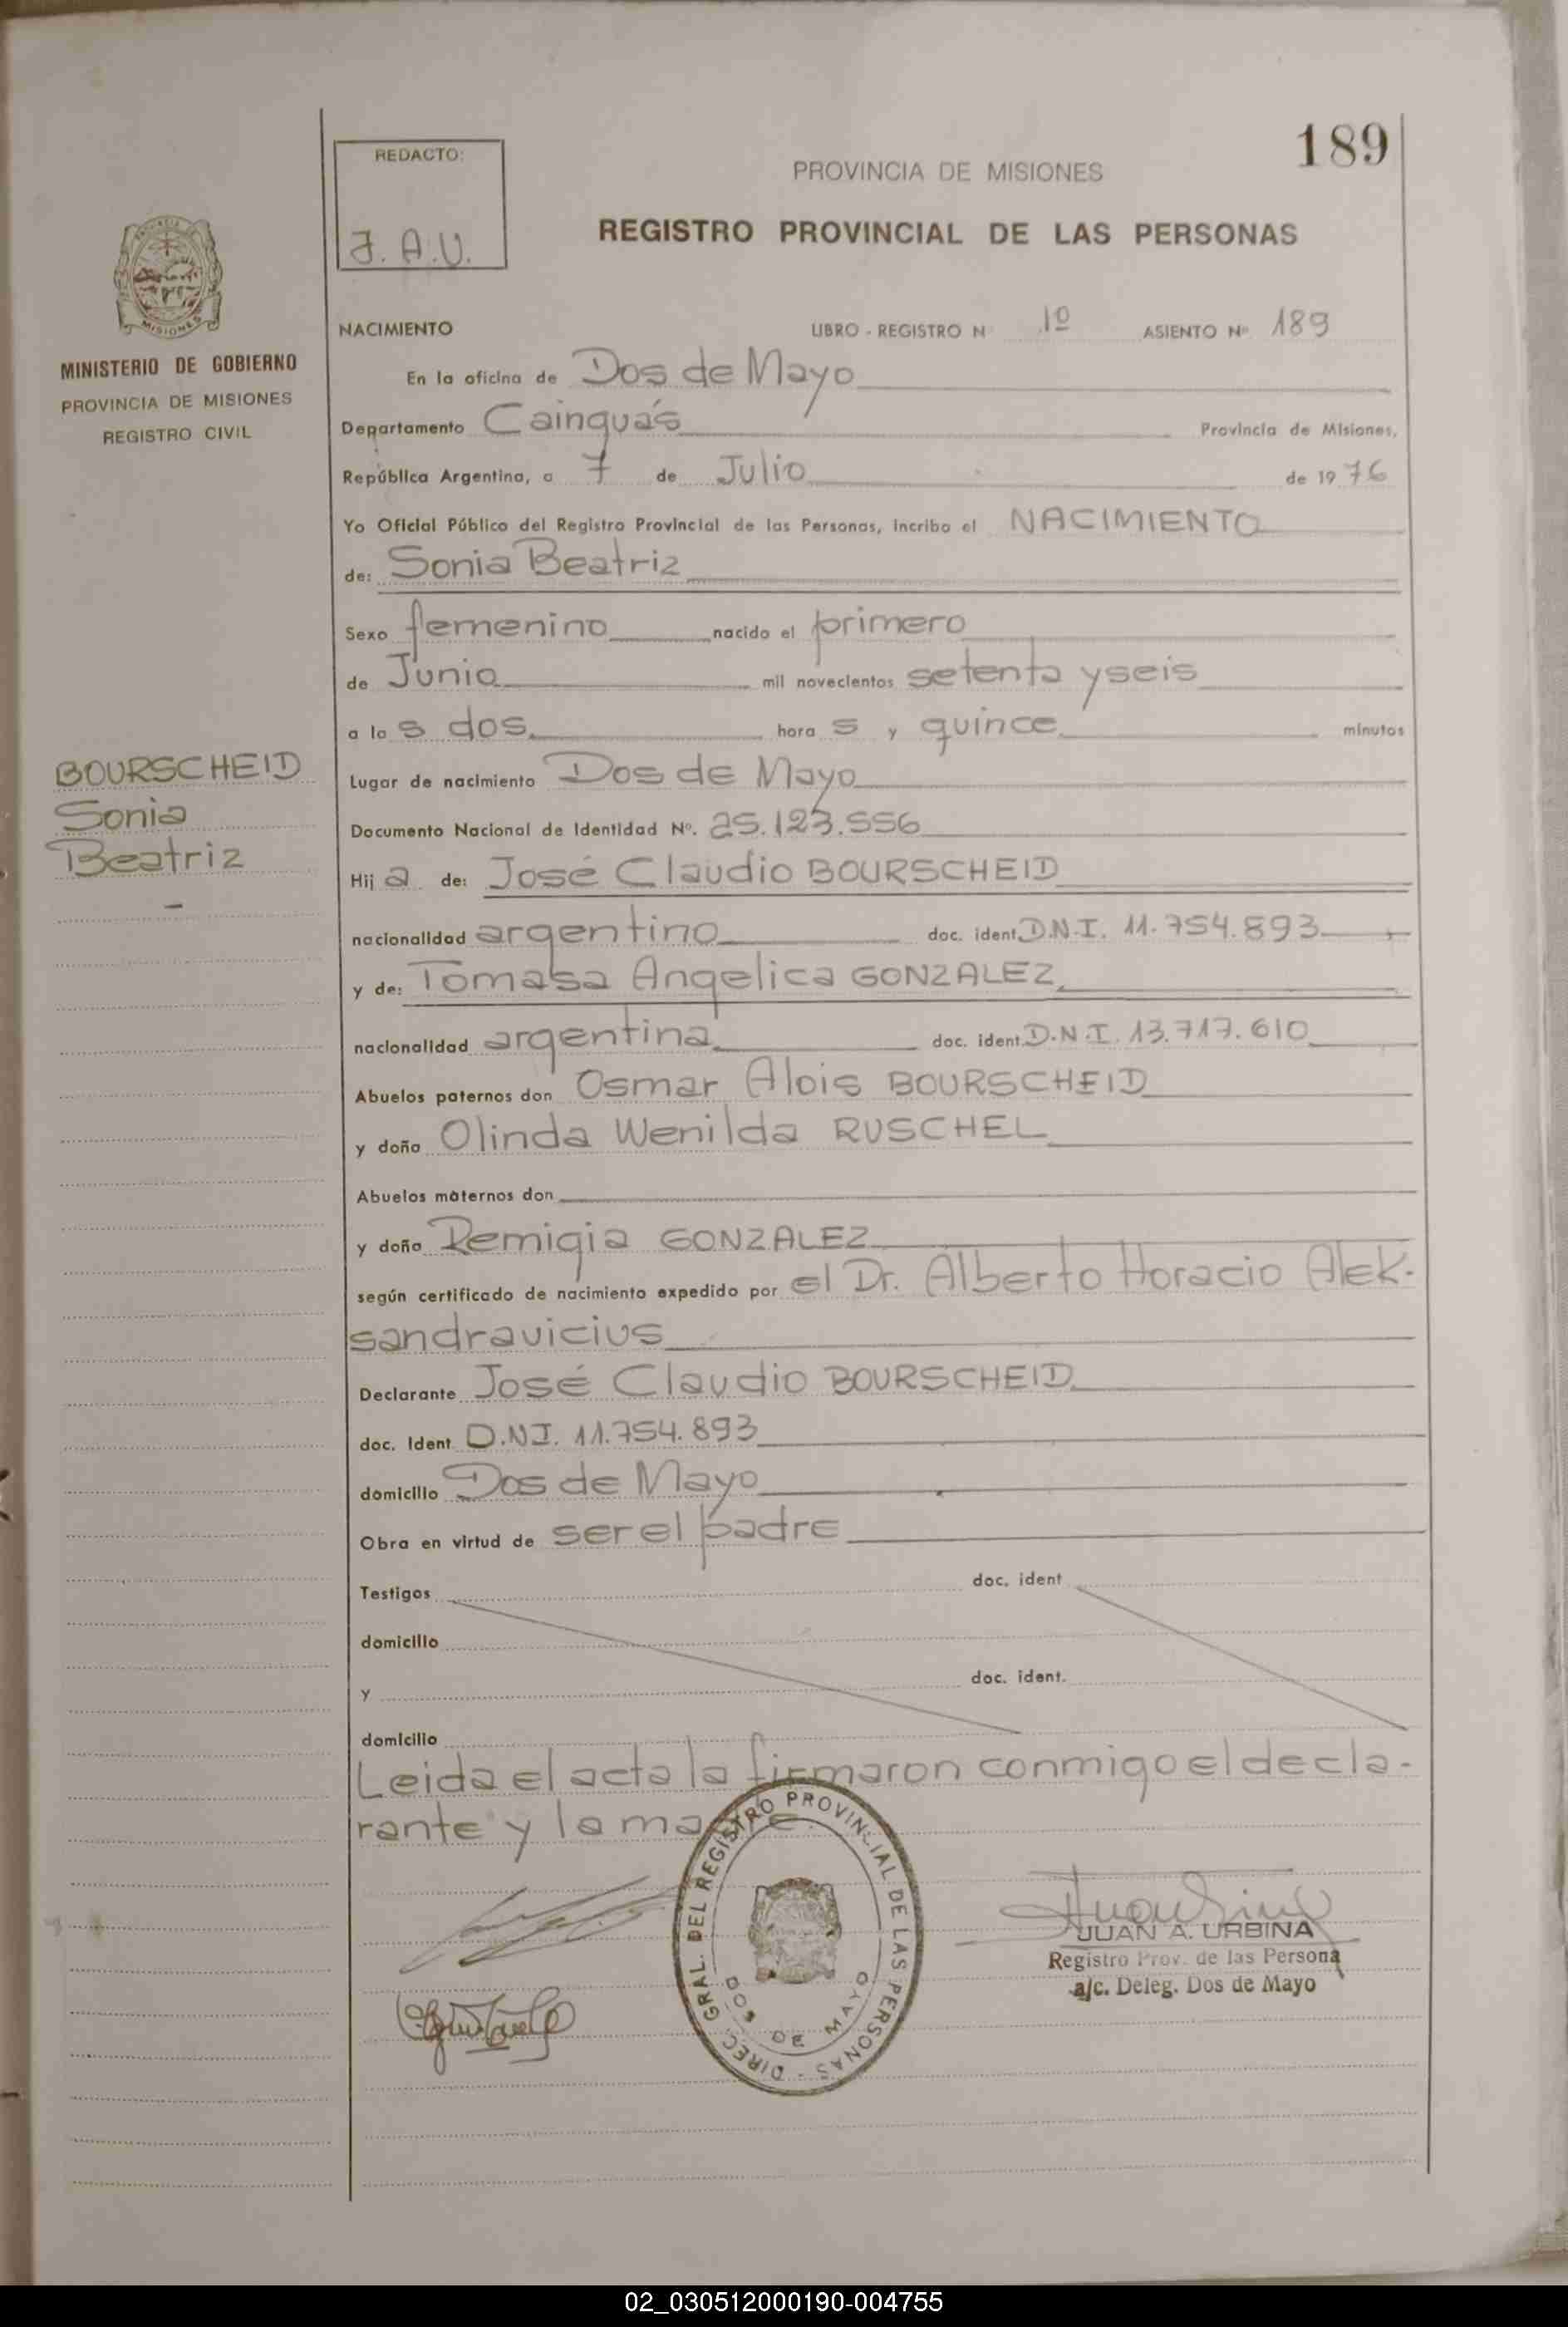 189
REDACTO:
J. A. U.
PROVINCIA DE MISIONES
REGISTRO PROVINCIAL DE LAS PERSONAS
MISIONES
MINISTERIO DE GOBIERNO
PROVINCIA DE MISIONES
REGISTRO CIVIL
BOURSCHEID
Sonia
Beatriz
NACIMIENTO LIBRO - REGISTRO N 1º ASIENTO Nº 189
En la oficina de Dos de Mayo
Departamento Cainguás Provincia de Misiones,
República Argentina, a 7 de Julio de 1976
Yo Oficial Público del Registro Provincial de las Personas, incribo el NACIMIENTO
de: Sonia Beatriz
Sexo femenino nacido el primero
de Junio mil novecientos setenta y seis
a las dos hora s y quince minutos
Lugar de nacimiento Dos de Mayo
Documento Nacional de Identidad Nº. 25.123.556
Hij a de: José Claudio BOURSCHEID
nacionalidad argentino doc. ident D.N.I. 11.754.893
y de: Tomasa Angelica GONZALEZ
nacionalidad argentina doc. ident. D.N.I. 13.717.610
Abuelos paternos don Osmar Alois BOURSCHEID
y doña Olinda Wenilda RUSCHEL
Abuelos maternos don
y doña Remigia GONZALEZ
según certificado de nacimiento expedido por el Dr. Alberto Horacio Alek-
sandravicius
Declarante José Claudio BOURSCHEID
doc. Ident D.N.I. 11.754.893
domicilio Dos de Mayo
Obra en virtud de ser el padre
Testigos doc. ident
domicilio
y doc. ident.
domicilio
Leida el acta la firmaron conmigo el decla-
rante y la madre.
DIREC. GRAL. DEL REGISTRO PROVINCIAL DE LAS PERSONAS -
DOS DE MAYO
JUAN A. URBINA
Registro Prov. de las Persona
a/c. Deleg. Dos de Mayo
02_030512000190-004755